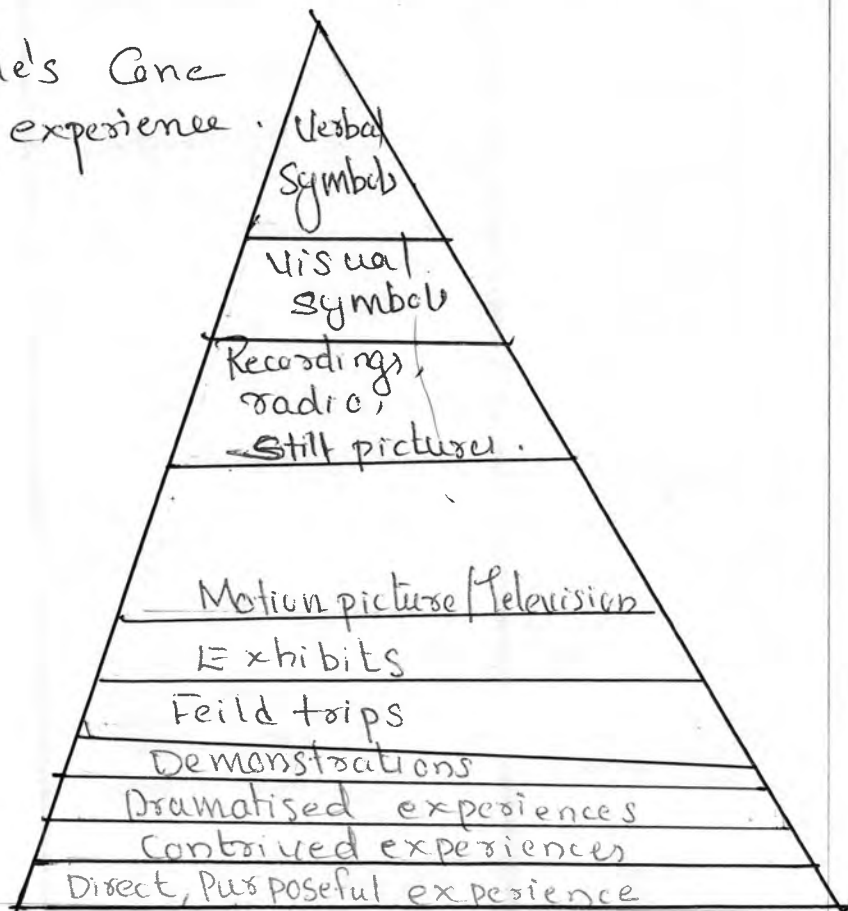 le's Cone
experience.
Verbal
Symbols
Visual
symbols
Recordings,
radio,
Still pictures.
Motion picture/Television
Exhibits
Feild trips
Demonstrations
Dramatised experiences
Contrived experiences
Direct, Purposeful experience